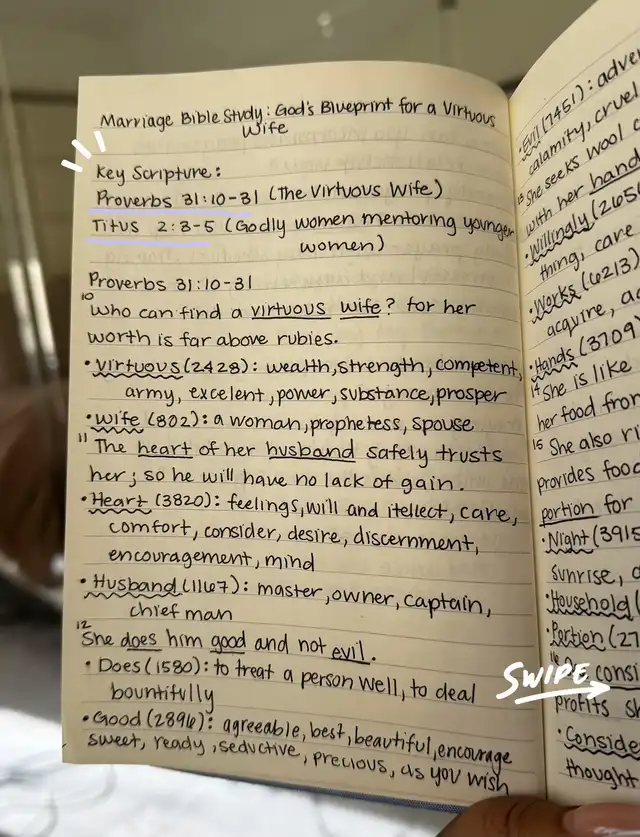 Marriage Bible Study: God's Blueprint for a Virtuous
Wife
Key Scripture:
Proverbs 31:10-31 (The Virtuous Wife)
Titus 2:3-5 (Godly women mentoring younger
women)
Proverbs 31:10-31
10
Who can find a virtuous wife? for her
worth is far above rubies.
•Virtuous (2428): wealth, strength, competent,
army, excelent, power, substance, prosper
•Wife (802): a woman, prophetess, spouse
11
The heart of her husband safely trusts
her; so he will have no lack of gain.
•Heart (3820): feelings, will and itellect, care,
comfort, consider, desire, discernment,
encouragement, mind
•Husband (1167): master, owner, captain,
chief man
12
She does him good and not evil.
•Does (1580): to treat a person well, to deal
bountifully
•Good (2896): agreeable, best, beautiful, encourage
sweet, ready, seductive, precious, as you wish
•Evil (7451):
calamity, cruel
13 She seeks wool
with her hand
•Willingly
thing, care
•Works (6213)
acquire,
•Hands (3709)
14 She is like
her food from
15 She also
provides food
portion for
•Night
sunrise,
•Household
•Portion
16
profits
•Conside
thought
SWIPE